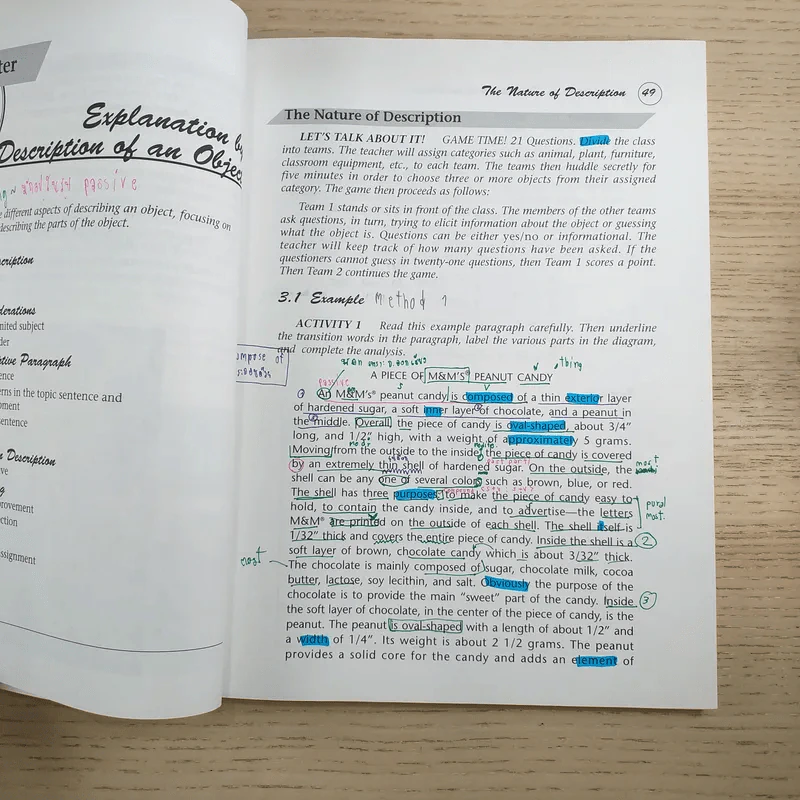 ter
Explanation by
Description of an Object
passive
e different aspects of describing an object, focusing on
describing the parts of the object.
scription
derations
nited subject
der
ptive Paragraph
ence
erns in the topic sentence and
pment
sentence
n Description
ve
g
provement
ection
ssignment
The Nature of Description 49
The Nature of Description
LET'S TALK ABOUT IT! GAME TIME! 21 Questions. Divide the class
into teams. The teacher will assign categories such as animal, plant, furniture,
classroom equipment, etc., to each team. The teams then huddle secretly for
five minutes in order to choose three or more objects from their assigned
category. The game then proceeds as follows:
Team 1 stands or sits in front of the class. The members of the other teams
ask questions, in turn, trying to elicit information about the object or guessing
what the object is. Questions can be either yes/no or informational. The
teacher will keep track of how many questions have been asked. If the
questioners cannot guess in twenty-one questions, then Team 1 scores a point.
Then Team 2 continues the game.
3.1 Example Method 1
ACTIVITY 1 Read this example paragraph carefully. Then underline
the transition words in the paragraph, label the various parts in the diagram,
and complete the analysis.
ompose of
thing
A PIECE OF M&M'S® PEANUT CANDY
passive
An M&M's® peanut candy is composed of a thin exterior layer
of hardened sugar, a soft inner layer of chocolate, and a peanut in
the middle. Overall, the piece of candy is oval-shaped, about 3/4"
long, and 1/2" high, with a weight of approximately 5 grams.
Moving from the outside to the inside, the piece of candy is covered
by an extremely thin shell of hardened sugar. On the outside, the
most
shell can be any one of several colors such as brown, blue, or red.
The shell has three purposes: to make the piece of candy easy to
hold, to contain the candy inside, and to advertise—the letters
most.
M&M® are printed on the outside of each shell. The shell itself is
1/32" thick and covers the entire piece of candy. Inside the shell is a 2
soft layer of brown, chocolate candy which is about 3/32" thick.
most
The chocolate is mainly composed of sugar, chocolate milk, cocoa
butter, lactose, soy lecithin, and salt. Obviously the purpose of the
chocolate is to provide the main "sweet" part of the candy. Inside 3
the soft layer of chocolate, in the center of the piece of candy, is the
peanut. The peanut is oval-shaped with a length of about 1/2" and
a width of 1/4". Its weight is about 2 1/2 grams. The peanut
provides a solid core for the candy and adds an element of